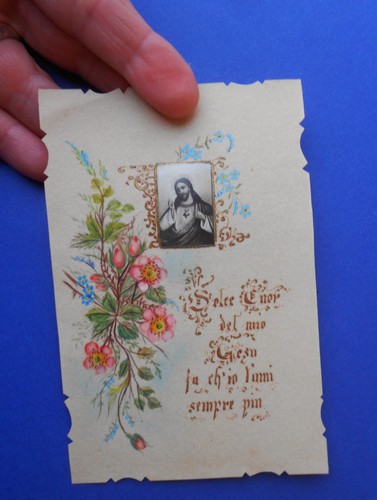 Dolce Cuor
del mio
Gesu
fa ch'io t'ami
sempre piu